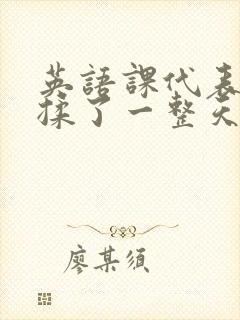 英語課代表
揉了一整天
廖某须